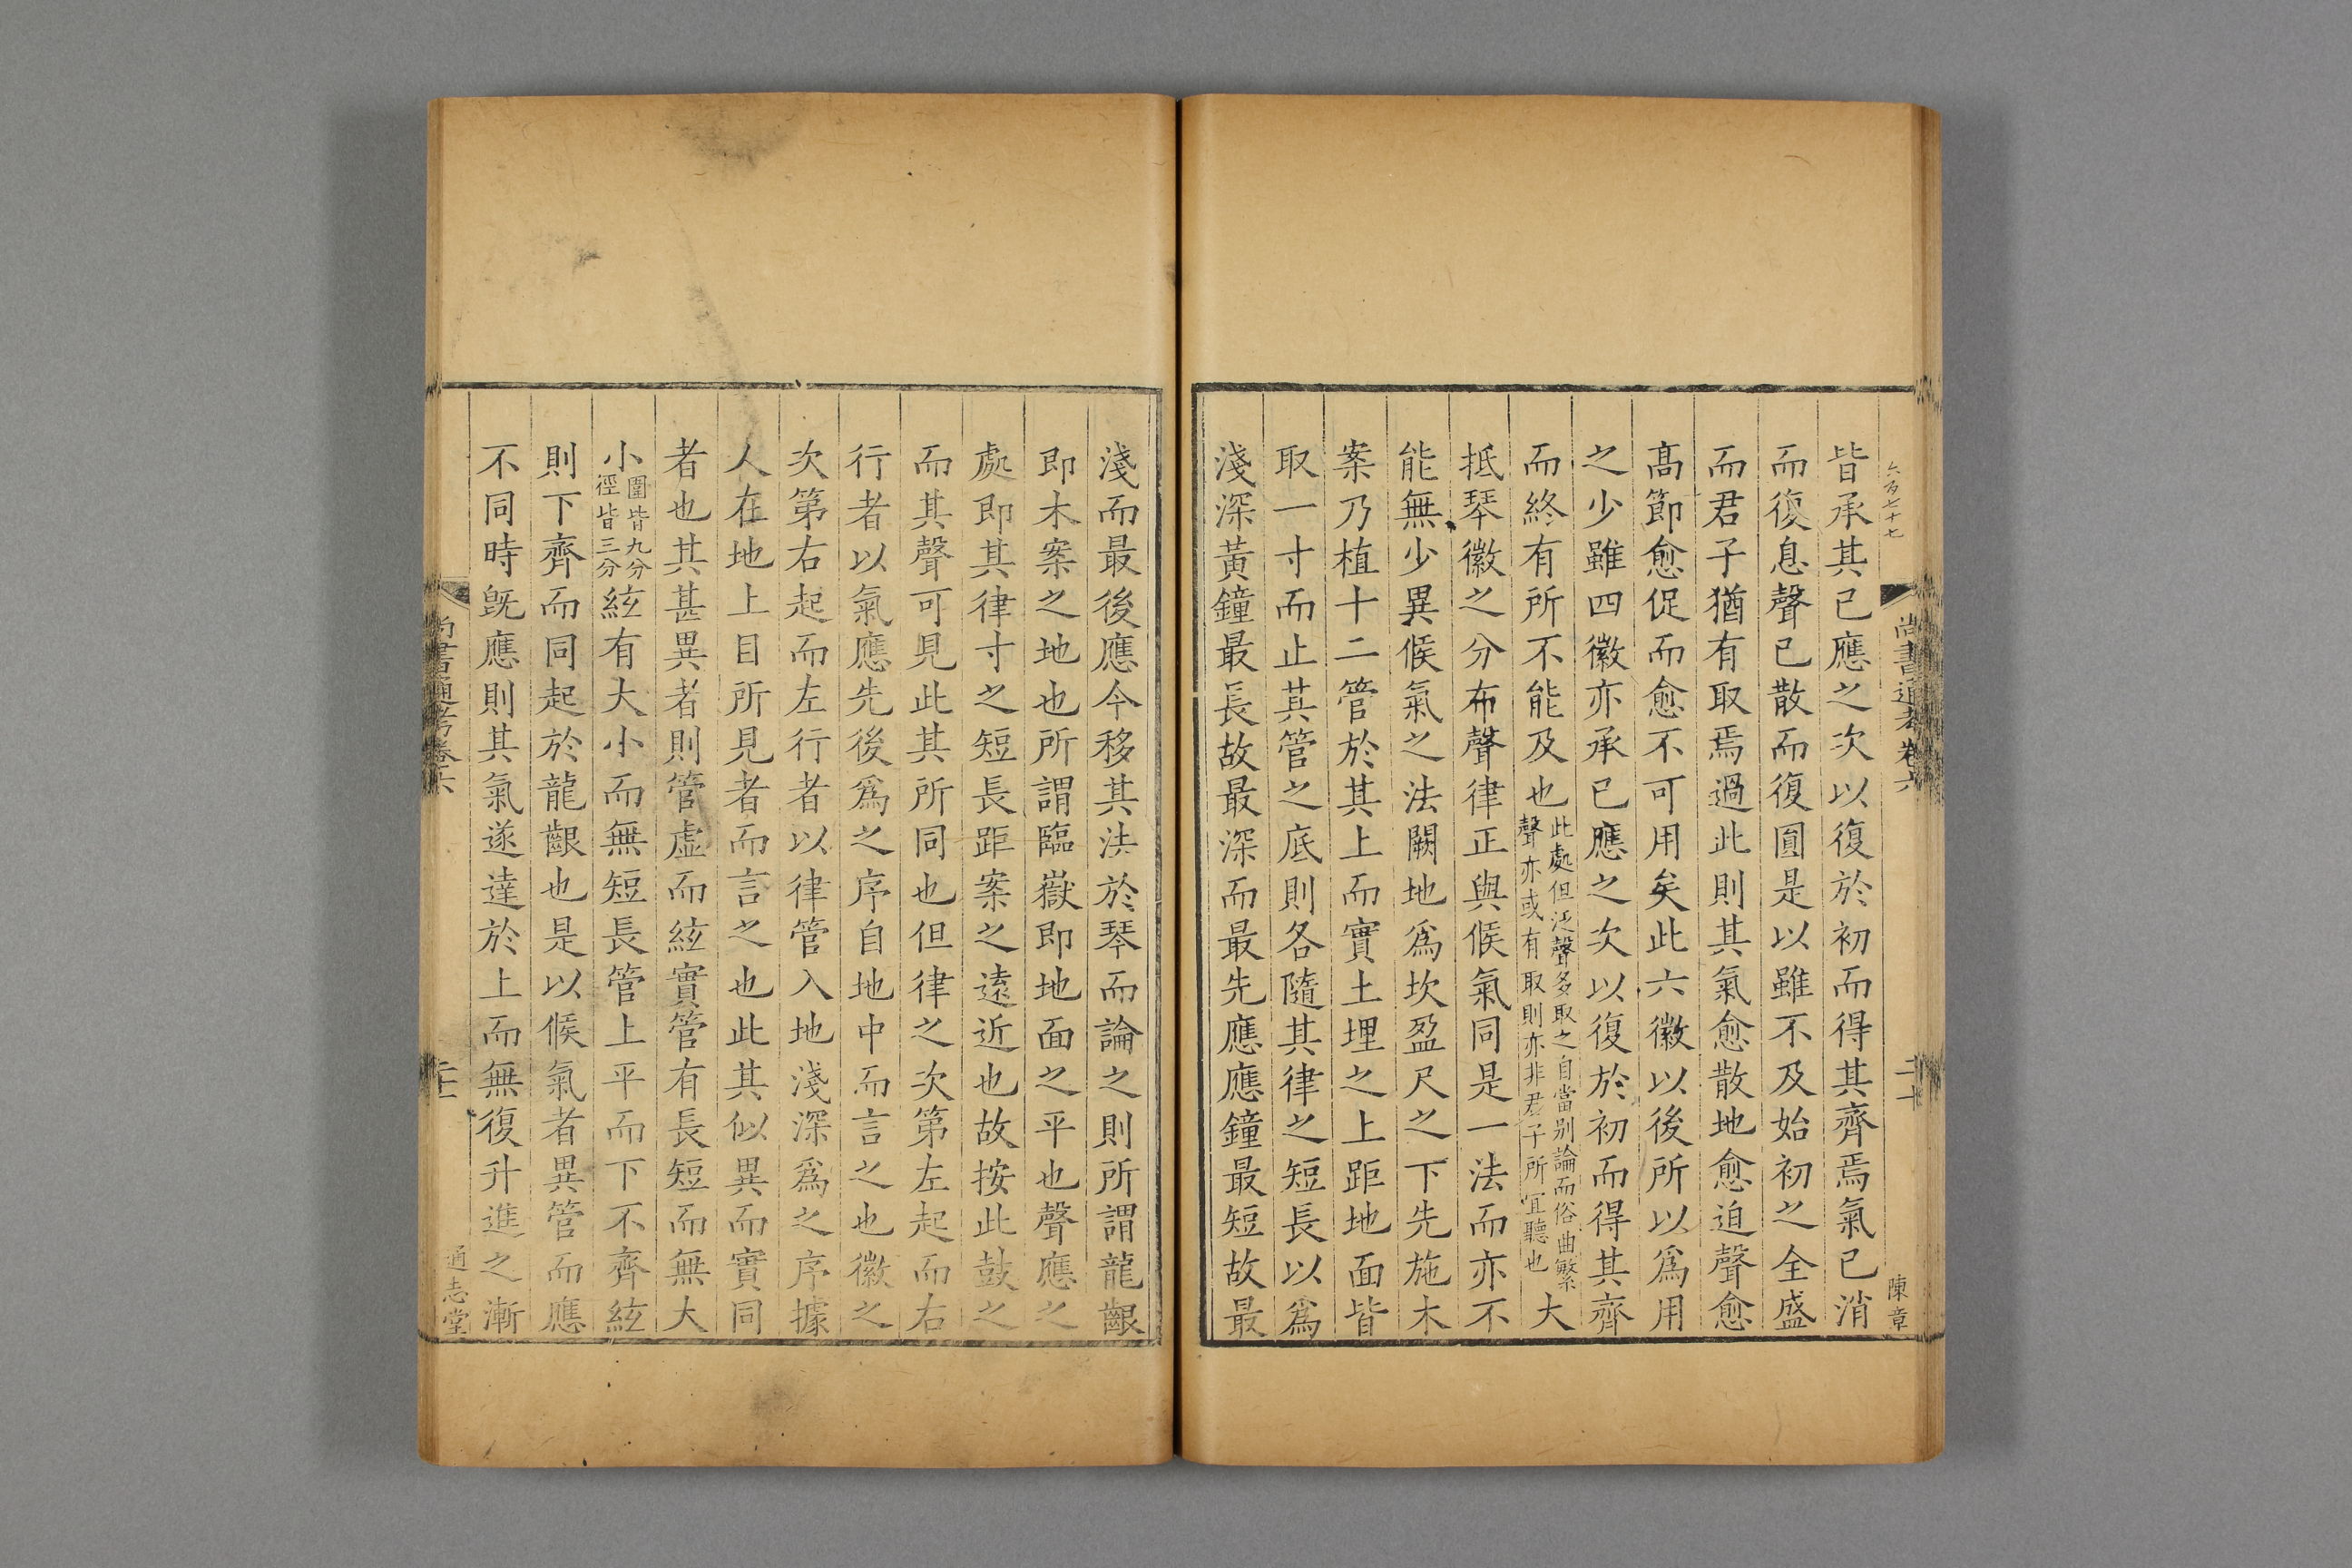 六百七十七
尚書通考卷六
二十
陳章
皆承其已應之次以復於初而得其齊焉氣已消
而復息聲已散而復圓是以雖不及始初之全盛
而君子猶有取焉過此則其氣愈散地愈迫聲愈
髙節愈促而愈不可用矣此六徽以後所以爲用
之少雖四徽亦承已應之次以復於初而得其齊
而終有所不能及也此處但泛聲多取之自當别論而俗曲繁
聲亦或有取則亦非君子所宜聽也大
抵琴徽之分布聲律正與候氣同是一法而亦不
能無少異候氣之法闕地爲坎盈尺之下先施木
案乃植十二管於其上而實土埋之上距地面皆
取一寸而止其管之底則各隨其律之短長以爲
淺深黃鐘最長故最深而最先應應鐘最短故最
淺而最後應今移其法於琴而論之則所謂龍齦
即木案之地也所謂臨嶽即地面之平也聲應之
處即其律寸之短長距案之遠近也故按此鼓之
而其聲可見此其所同也但律之次第左起而右
行者以氣應先後爲之序自地中而言之也徽之
次第右起而左行者以律管入地淺深爲之序據
人在地上目所見者而言之也此其似異而實同
者也其甚異者則管虛而絃實管有長短而無大
小圍皆九分
徑皆三分絃有大小而無短長管上平而下不齊絃
則下齊而同起於龍齦也是以候氣者異管而應
不同時旣應則其氣遂達於上而無復升進之漸
尚書通考卷六
通志堂